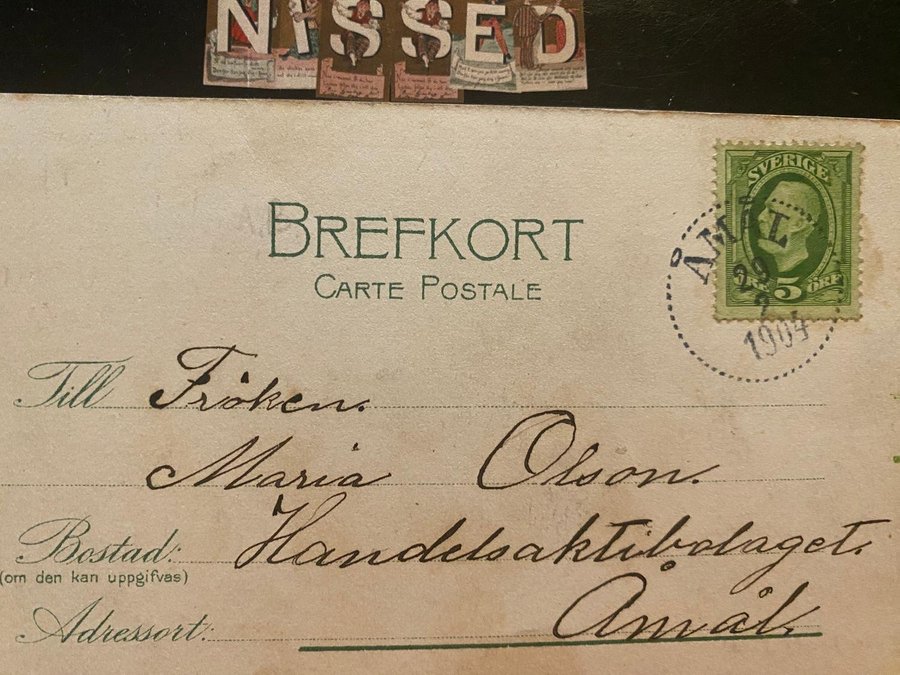 NISSED
BREFKORT
CARTE POSTALE
SVERIGE
5 ÖRE
ÅMÅL
29
1904
Till Fröken.
Maria Olson.
Bostad: Handelsaktibolaget.
(om den kan uppgifvas)
Adressort: Åmål.